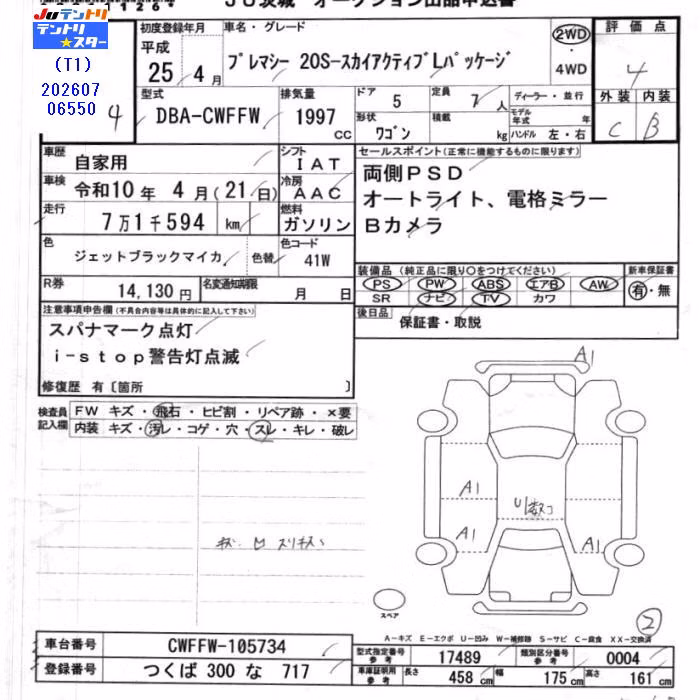 JU茨城 オークション出品申込書
JUテントリ
テントリ
★スター
(T1)
202607
06550
4
初度登録年月
平成
25年4月
車名・グレード
プレマシー 20S-スカイアクティブLパッケージ
2WD
・
4WD
評価点
4
外装 内装
C B
型式
DBA-CWFFW
排気量
1997
CC
ドア
5
定員
7人
形状
ワゴン
積載
kg
ディーラー・並行
モデル年式 年
ハンドル 左・右
車歴
自家用
シフト
IAT
車検
令和10年 4月(21日)
冷房
AAC
走行
7万1千594 km
燃料
ガソリン
色
ジェットブラックマイカ
色替
色コード
41W
R券
14,130円
名変通知期限
月 日
セールスポイント(正常に機能するものに限ります)
両側PSD
オートライト、電格ミラー
Bカメラ
装備品(純正品に限り〇をつけてください)
PS PW ABS エアB AW
SR ナビ TV カワ
新車保証書
有・無
後日品
保証書・取説
注意事項申告欄(不具合内容等は具体的に記入して下さい)
スパナマーク点灯
i-stop警告灯点滅
修復歴 有〔箇所 〕
検査員
記入欄
FW キズ・飛石・ヒビ割・リペア跡・×要
内装 キズ・汚レ・コゲ・穴・スレ・キレ・破レ
A1
A1
A1
A1
スペア
2
A-キズ E-エクボ U-凹み W-補修跡 S-サビ C-腐食 XX-交換済
車台番号
CWFFW-105734
登録番号
つくば 300 な 717
型式指定番号
参考
17489
類別区分番号
参考
0004
車庫証明用
参考
長さ
458cm
幅
175cm
高さ
161cm